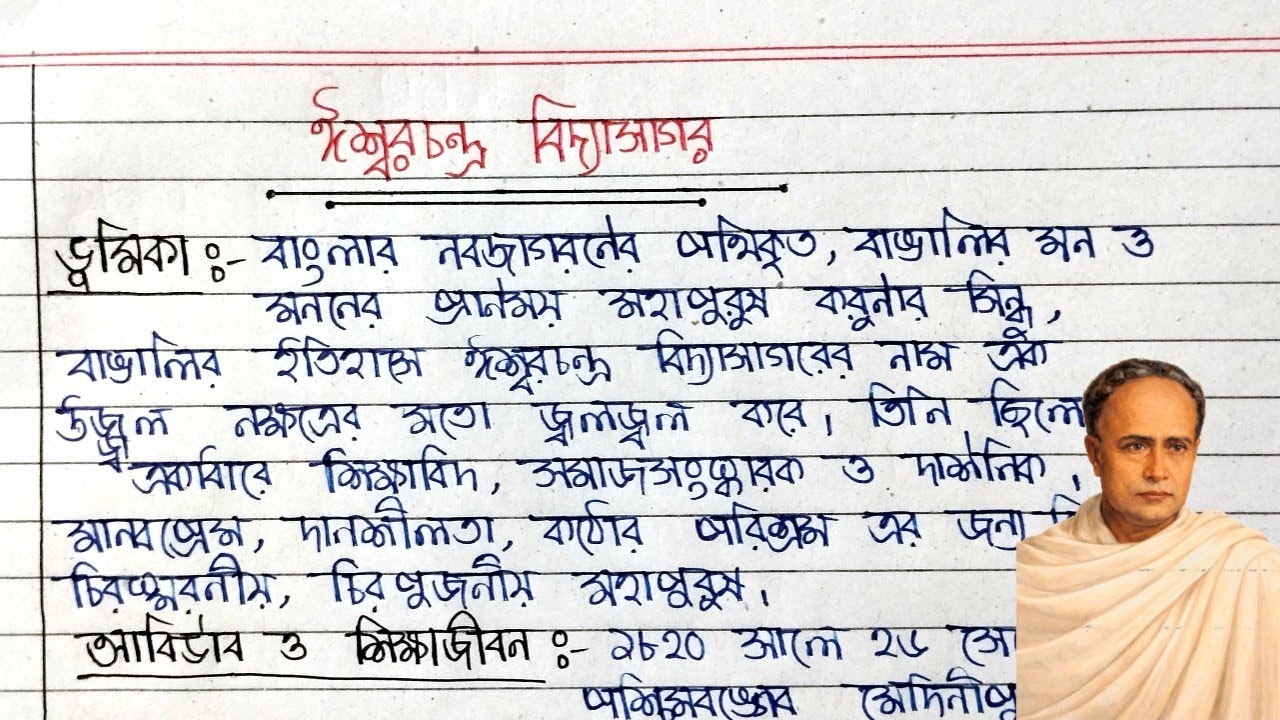 ঈশ্বরচন্দ্র বিদ্যাসাগর
ভূমিকা :- বাংলার নবজাগরনের পথিকৃত, বাঙালির মন ও
মননের প্রানময় মহাপুরুষ করুনার সিন্ধু,
বাঙালির ইতিহাসে ঈশ্বরচন্দ্র বিদ্যাসাগরের নাম এক
উজ্জ্বল নক্ষত্রের মতো জ্বলজ্বল করে। তিনি ছিলে
একাধারে শিক্ষাবিদ, সমাজসংস্কারক ও দার্শনিক।
মানবপ্রেম, দানশীলতা, কঠোর পরিশ্রম এর জন্য তি
চিরস্মরনীয়, চিরপুজনীয় মহাপুরুষ।
আবির্ভাব ও শিক্ষাজীবন :- ১৮২০ সালে ২৬ সে
পশ্চিমবঙ্গের মেদিনীপু